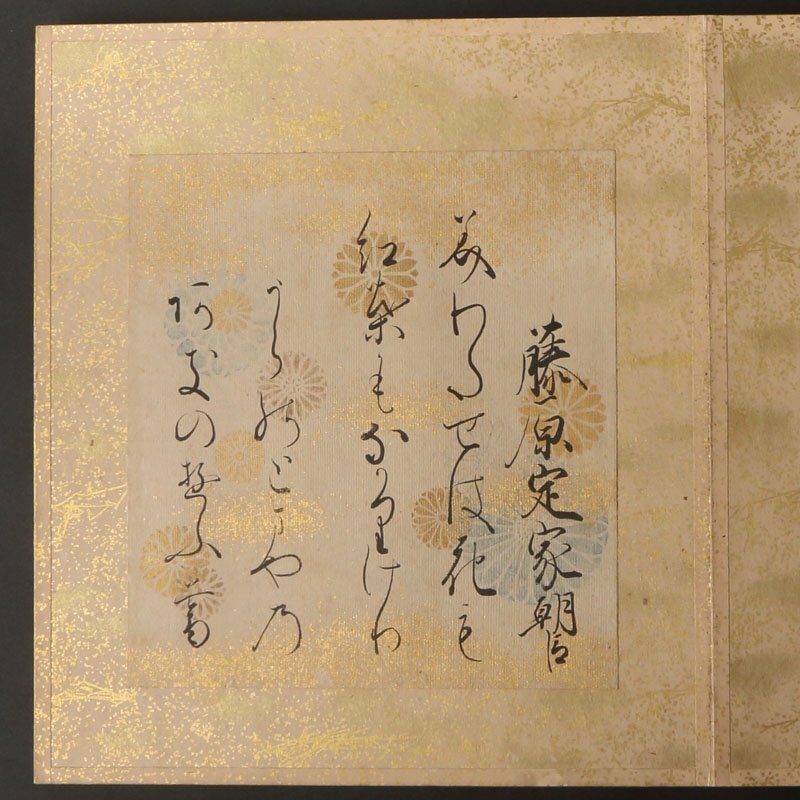 藤原定家朝臣
美わたせは花も
紅葉もなかりけり
うらのとまやの
阿きの遊ふ暮